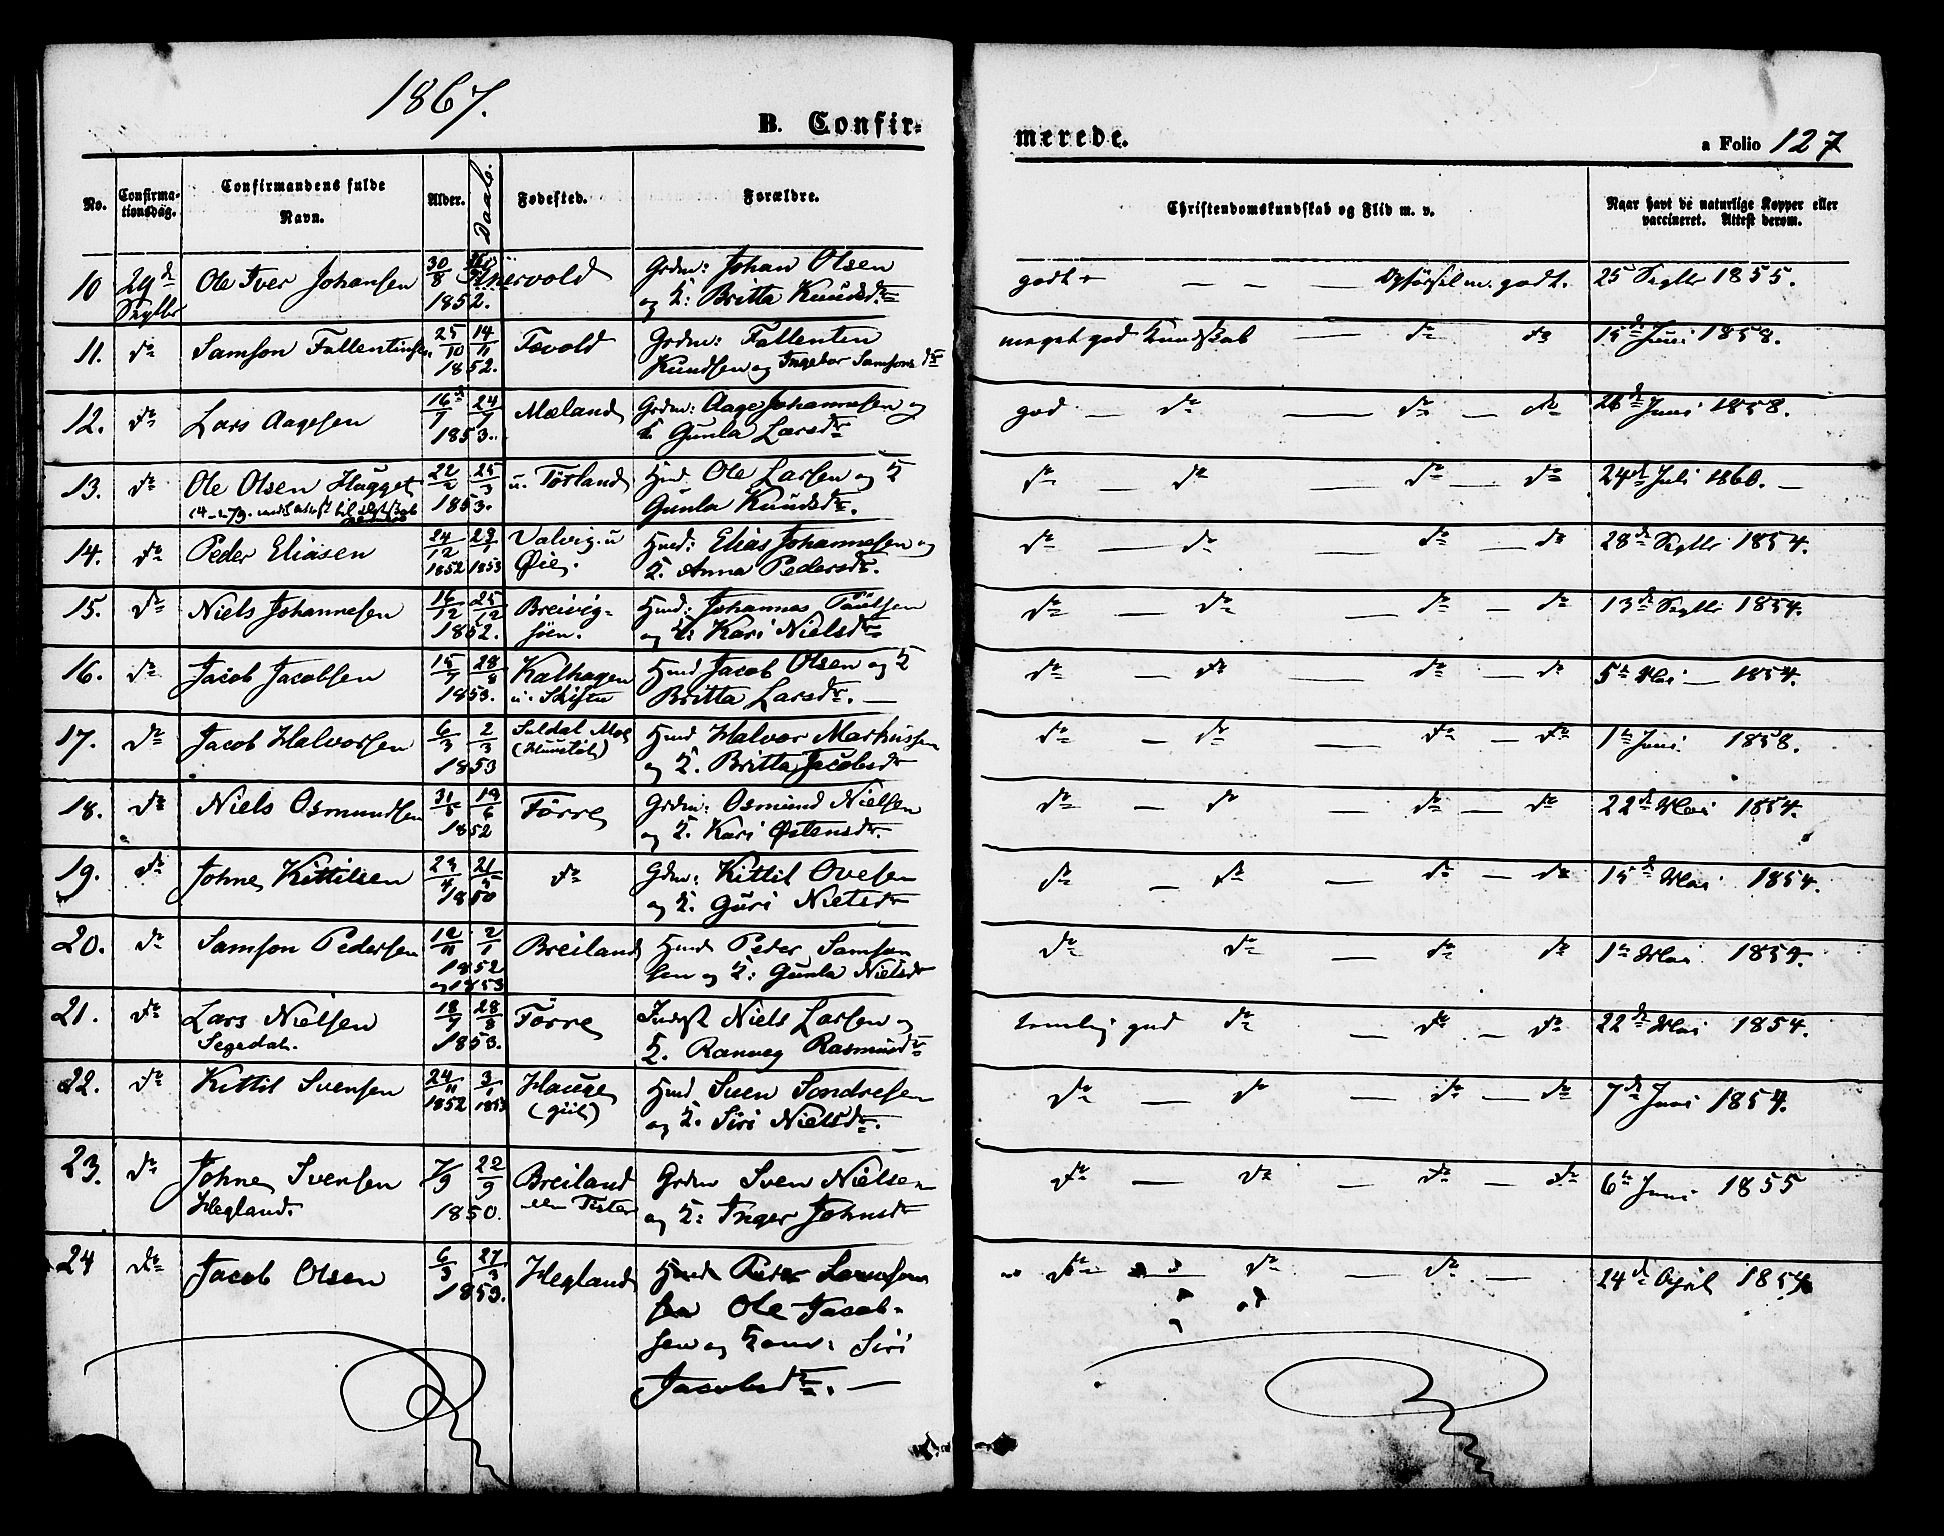 1867.
B. Confir-
merede.
a Folio 127
No.
Confirma-
tionsdag.
Confirmandens fulde
Navn.
Alder.
Daab.
Fødested.
Forældre.
Christendomskundskab og Flid m. v.
Naar havt de naturlige Kopper eller
vaccineret. Attest derom.
10 29de Septbr Ole Iver Johansen 30/8 1852. Grdm: Johan Olsen
og K: Britta Knudsdr godt - — — Opførsel m. godt. 25 Septbr 1855.
11. do Samson Fallentinsen 25/10 14/11 1852. Tøvold Grdm: Fallenten
Knudsen og Ingebor Samsonsdr meget god Kundskab — do do 15de Juni 1858.
12. do Lars Aagesen 16/7 24/7 1853. Mæland Grdm: Aage Johannesen og
K Gunla Larsdr god — do — do — do 26de Juni 1858.
13. do Ole Olsen Hugget 22/2 25/3 1853. u. Tørland Hmd. Ole Larsen og K
Gunla Knudsdr. do — do — do — do 24de Juli 1860. —
14. do Peder Eliasen 24/12 1852 29/1 1853 Valvig u
Øie. Hmd: Elias Johannesen og
K. Anna Pedersdr. do — do — do — do 28de Septbr 1854.
15. do Niels Johannesen 16/12 25/12 1852. Breivig-
søen. Hmd: Johannes Paulsen
og K: Kari Nielsdr do — do — do — do 13de Septbr 1854.
16. do Jacob Jacobsen 15/7 28/8 1853. Kalhagen
u. Skiften Hmd Jacob Olsen og K
Britta Larsdr. — do — do — do — do 5te Mai — 1854.
17. do Jacob Halvorsen 6/3 2/3 1853 Suldal Moe Hmd Halvor Markussen
og K. Britta Jacobsdr do — do — do — do 1te Juni 1858.
18. do Niels Osmundsen 31/5 19/6 1852 Førre Grdm: Osmund Nielsen
og K. Kari Østensdr. do — do — do — do 22de Mai 1854.
19. do Johne Kittilsen 23/4 21/4 1850 do Gdm: Kittil Ovesen
og K. Guri Nielsdr do — do — do — do 15de Mai 1854.
20. do Samson Pedersen 12/11 2/1 1852
og 1853 Breiland Hmd Peder Samson
sen og K: Gunla Nielsdr do — do — do do 1te Mai 1854.
21. do Lars Nielsen
Segedal. 18/7 28/8 1853. Førre Inderst Niels Larsen og
K. Ranveg Rasmusdr temlig god do — do — do 22de Mai 1854.
22. do Kittil Svensen 24/11 1852 3/1 1853 Hauge Hmd Sven Sondresen
og K. Siri Nielsdr. do — do — do — do 7de Juni 1854.
23. do Johne Svensen
Hegland. 7/9 22/9 1850. Breiland Grdm Sven Nielsen
og K: Inger Johnsdr do — do — do — do 6te Juni 1855
24 do Jacob Olsen 6/3 27/3 1853. Hegland Hmd
Ole Jacob-
sen og Kone: Siri
Jacobsdr. — do do — do — 24de April 1854